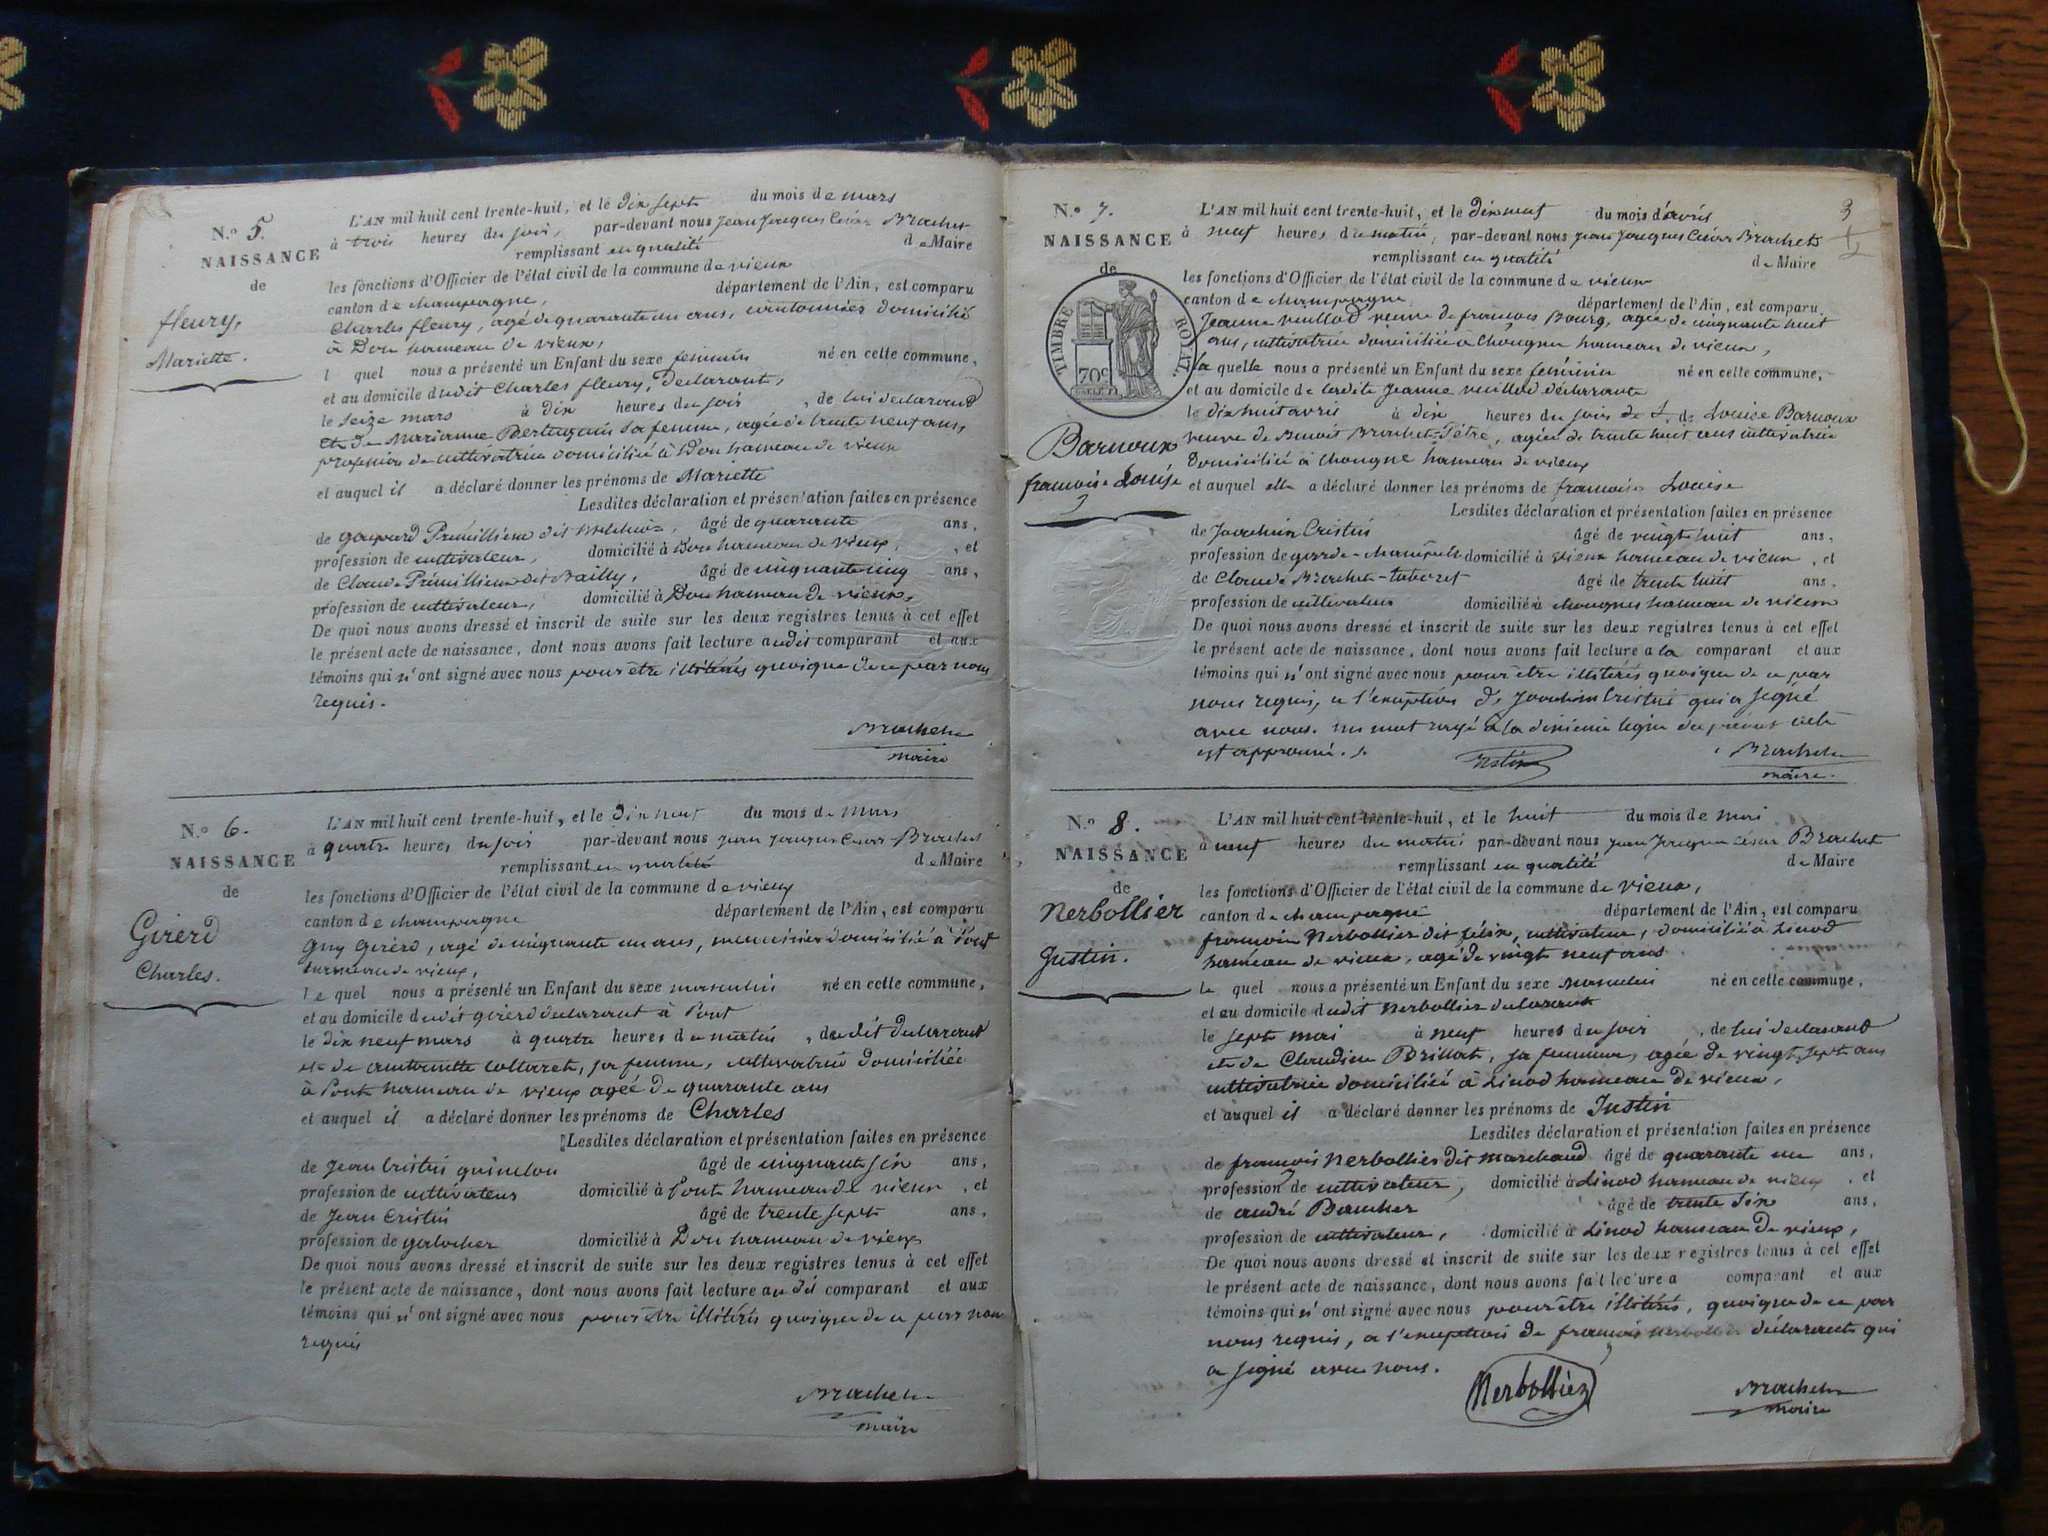 N.º 5.
NAISSANCE
de
fleury,
Mariette.
L'AN mil huit cent trente-huit, et le dix sept du mois de mars
à trois heures du soir, par-devant nous jean jacques César Brachet
remplissant en qualité de Maire
les fonctions d'Officier de l'état civil de la commune de vieux
canton de champagne, département de l'Ain, est comparu
Charles fleury, agé de quarante un ans, domicilié
à Don hameau de vieux,
l quel nous a présenté un Enfant du sexe feminin né en cette commune,
et au domicile dudit Charles fleury, déclarant,
le seize mars à dix heures du soir, de lui declarant
et de Marianne sa femme, agée de trente neuf ans,
profession de cultivatrice domiciliée à Don hameau de vieux
et auquel il a déclaré donner les prénoms de Mariette
Lesdites déclaration et présentation faites en présence
de gaspard dit âgé de quarante ans,
profession de cultivateur, domicilié à Don hameau de vieux, et
de Claude dit Bailly, âgé de cinquante cinq ans,
profession de cultivateur, domicilié à Don hameau de vieux,
De quoi nous avons dressé et inscrit de suite sur les deux registres tenus à cet effet
le présent acte de naissance, dont nous avons fait lecture audit comparant et aux
témoins qui n'ont signé avec nous pour être illitérés quoique de ce par nous
requis.
Brachet
maire
N.º 6.
NAISSANCE
de
Girerd
Charles.
L'AN mil huit cent trente-huit, et le dix neuf du mois de mars
à quatre heures du soir par-devant nous jean jacques César Brachet
remplissant en qualité de Maire
les fonctions d'Officier de l'état civil de la commune de vieux
canton de champagne département de l'Ain, est comparu
Guy Girerd, agé de cinquante un ans, menuisier domicilié à Pont
hameau de vieux,
le quel nous a présenté un Enfant du sexe masculin né en cette commune,
et au domicile dudit girerd declarant à Pont
le dix neuf mars à quatre heures du matin, dudit declarant
et de antoinette collaret, sa femme, cultivatrice domiciliée
à Pont hameau de vieux agée de quarante ans
et auquel il a déclaré donner les prénoms de Charles
Lesdites déclaration et présentation faites en présence
de Jean Cristin âgé de cinquante six ans,
profession de cultivateur domicilié à Pont hameau de vieux, et
de Jean Cristin âgé de trente sept ans,
profession de galocher domicilié à Don hameau de vieux
De quoi nous avons dressé et inscrit de suite sur les deux registres tenus à cet effet
le présent acte de naissance, dont nous avons fait lecture audit comparant et aux
témoins qui n'ont signé avec nous pour être illitérés quoique de ce par nous
requis
Brachet
maire
3
N.º 7.
NAISSANCE
de
TIMBRE ROYAL
70c
Barnoux
francoise Louise
L'AN mil huit cent trente-huit, et le dix neuf du mois d'avril
à neuf heures du matin, par-devant nous jean jacques César Brachet
remplissant en qualité de Maire
les fonctions d'Officier de l'état civil de la commune de vieux
canton de champagne département de l'Ain, est comparu
Jeanne vuillod veuve de francois Bourg, agée de cinquante huit
ans, cultivatrice domiciliée à Chongne hameau de vieux,
la quelle nous a présenté un Enfant du sexe féminin né en cette commune,
et au domicile de ladite Jeanne vuillod déclarante
le dix huit avril à dix heures du soir de Louise Barnoux
veuve de Benoit Brachet-Pétre, agée de trente huit ans cultivatrice
domiciliée à Chongne hameau de vieux
et auquel elle a déclaré donner les prénoms de francoise Louise
Lesdites déclaration et présentation faites en présence
de Joachim Cristin âgé de vingt huit ans,
profession de garde-champêtre domicilié à vieux hameau de vieux, et
de Claude Brachet-taboret âgé de trente huit ans,
profession de cultivateur domicilié à chongnes hameau de vieux
De quoi nous avons dressé et inscrit de suite sur les deux registres tenus à cet effet
le présent acte de naissance, dont nous avons fait lecture a la comparant et aux
témoins qui n'ont signé avec nous pour être illitérés quoique de ce par
nous requis, a l'exception de Joachim Cristin qui a signé
avec nous. un mot rayé à la dixième ligne du présent acte
est approuvé.
Brachet
maire.
N.º 8.
NAISSANCE
de
Nerbollier
Justin.
L'AN mil huit cent trente-huit, et le huit du mois de mai
à neuf heures du matin par-devant nous jean jacques César Brachet
remplissant en qualité de Maire
les fonctions d'Officier de l'état civil de la commune de vieux,
canton de champagne département de l'Ain, est comparu
françois Nerbollier dit félix, cultivateur, domicilié à Linod
hameau de vieux, agé de vingt neuf ans
le quel nous a présenté un Enfant du sexe masculin né en cette commune,
et au domicile dudit Nerbollier declarant
le sept mai à neuf heures du soir, de lui declarant
et de Claudine Brillat, sa femme, agée de vingt sept ans
cultivatrice domiciliée à Linod hameau de vieux,
et auquel il a déclaré donner les prénoms de Justin
Lesdites déclaration et présentation faites en présence
de françois Nerbollier dit marchand âgé de quarante un ans,
profession de cultivateur, domicilié à Linod hameau de vieux, et
de andré Bancher âgé de trente six ans,
profession de cultivateur, domicilié à Linod hameau de vieux,
De quoi nous avons dressé et inscrit de suite sur les deux registres tenus à cet effet
le présent acte de naissance, dont nous avons fait lecture a comparant et aux
témoins qui n'ont signé avec nous pour être illitérés, quoique de ce par
nous requis, a l'exception de françois Nerbollier déclarant qui
a signé avec nous.
Nerbollier
Brachet
maire